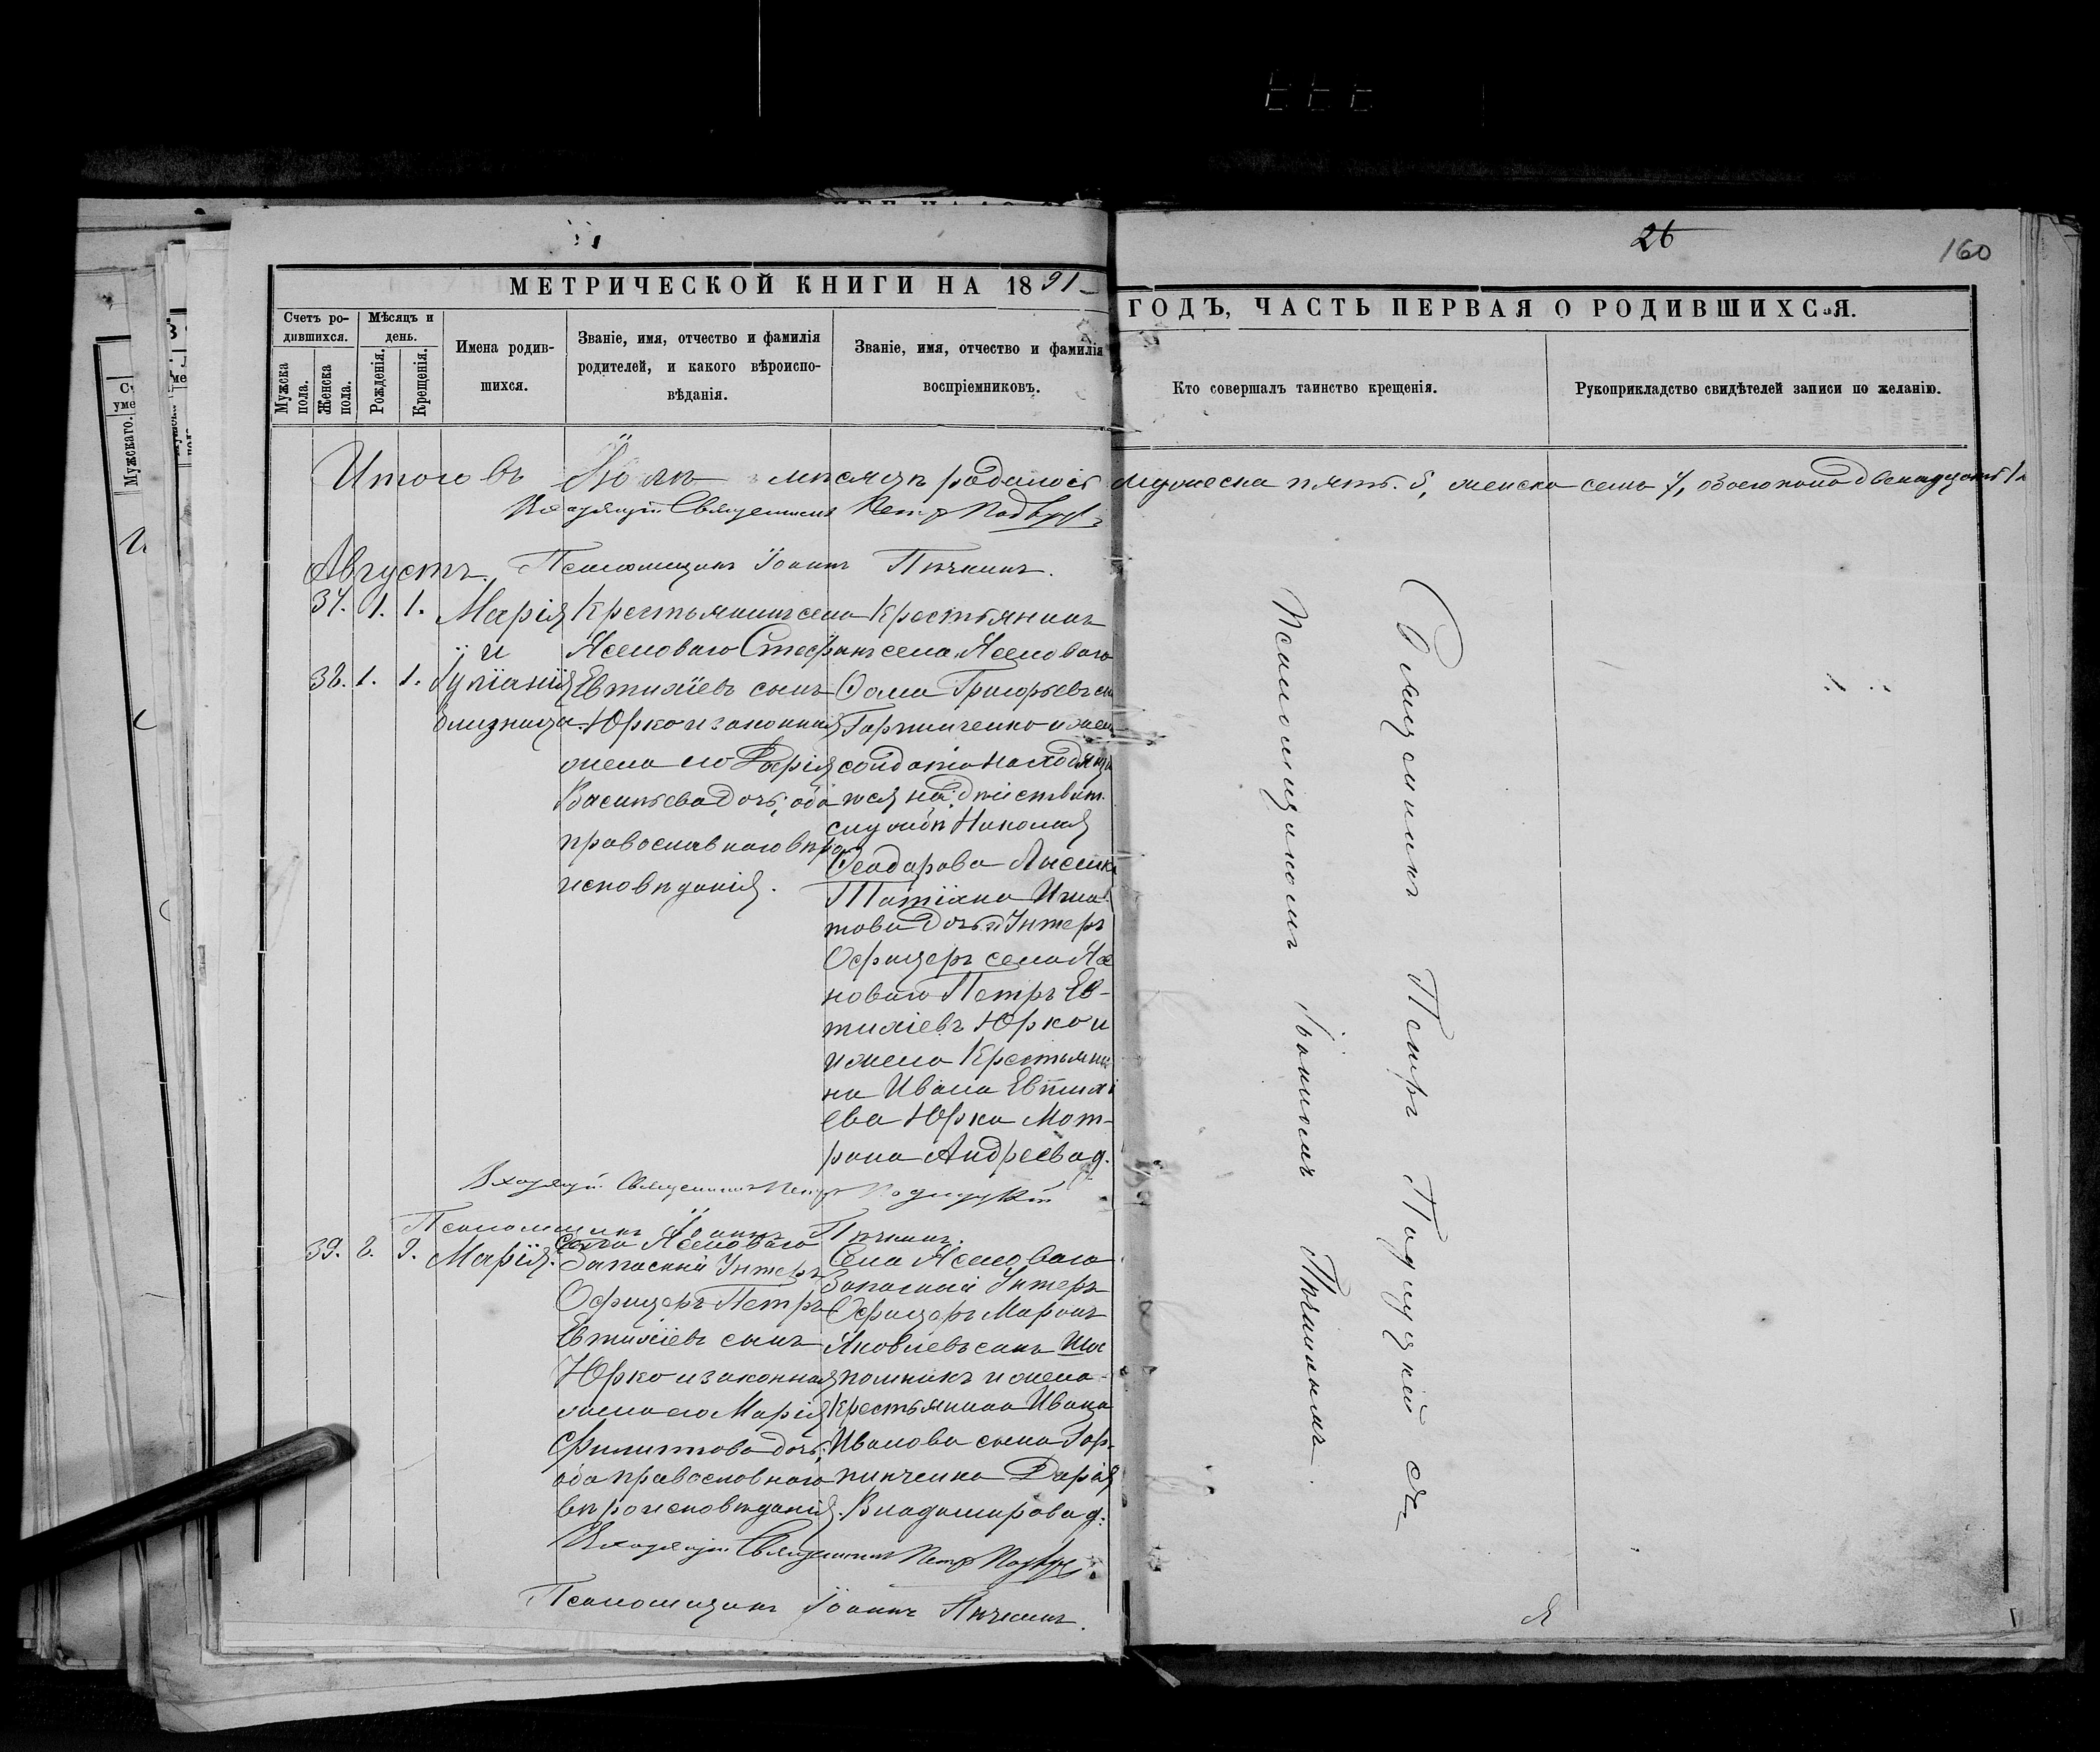 26
160
МЕТРИЧЕСКОЙ КНИГИ НА 1891
ГОДЪ, ЧАСТЬ ПЕРВАЯ О РОДИВШИХСЯ.
Счетъ ро-
дившихся.
Мужска
пола.
Женска
пола.
Мѣсяцъ и
день.
Рожденія.
Крещенія.
Имена родив-
шихся.
Званіе, имя, отчество и фамилія
родителей, и какого вѣроиспо-
вѣданія.
Званіе, имя, отчество и фамилія
воспріемниковъ.
Кто совершалъ таинство крещенія.
Рукоприкладство свидѣтелей записи по желанію.
Итого въ мѣсяцѣ родилось мужеска пять. 5, женска семь 7, обоего пола двенадцать
Священникъ Петръ
Августъ.
Псаломщикъ Іоаннъ Пѣчкинъ.
37. 1. 1. Марія
и
38. 1. 1.
близнецы.
Крестьянинъ села
Ясеноваго Стефанъ
Евтихіевъ сынъ
Юрко и законная
жена его Дарія
Васильева дочь, оба
православнаго вѣро
исповѣданія.
Крестьянинъ
села Ясеноваго
Ѳома Григорьевъ
Горпинченко и жена
солдата находяща
гося на дѣйствит.
службѣ Николая
Ѳеодорова
Татіана Игна
това дочь и Унтеръ
Офицеръ села Ясе
новаго Петръ Ев-
тихіевъ Юрко и
жена Крестьяни
на Ивана Евтихі
ева Юрка Мот-
рона Андреева д.
Священникъ Петръ
Псаломщикъ Іоаннъ Пѣчкинъ.
39. 8. 9. Марія.
Села Ясеноваго
Запасный Унтеръ
Офицеръ Петръ
Евтихіевъ сынъ
Юрко и законная
жена его Марія
Филиппова дочь,
оба православнаго
вѣроисповѣданія.
Села Ясеноваго
Запасный Унтеръ
Офицеръ Миронъ
Яковлевъ сынъ
и жена
Крестьянина Ивана
Иванова сына Гор-
пинченка Дарія
Владимирова д.
Священникъ Петръ
Псаломщикъ Іоаннъ Пѣчкинъ.
Священникъ Петръ съ
Псаломщикомъ Іоанномъ Пѣчкинымъ.